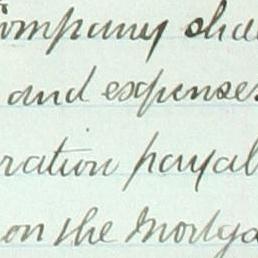 ompany sha
and expenses
ration payal
on the Mortga